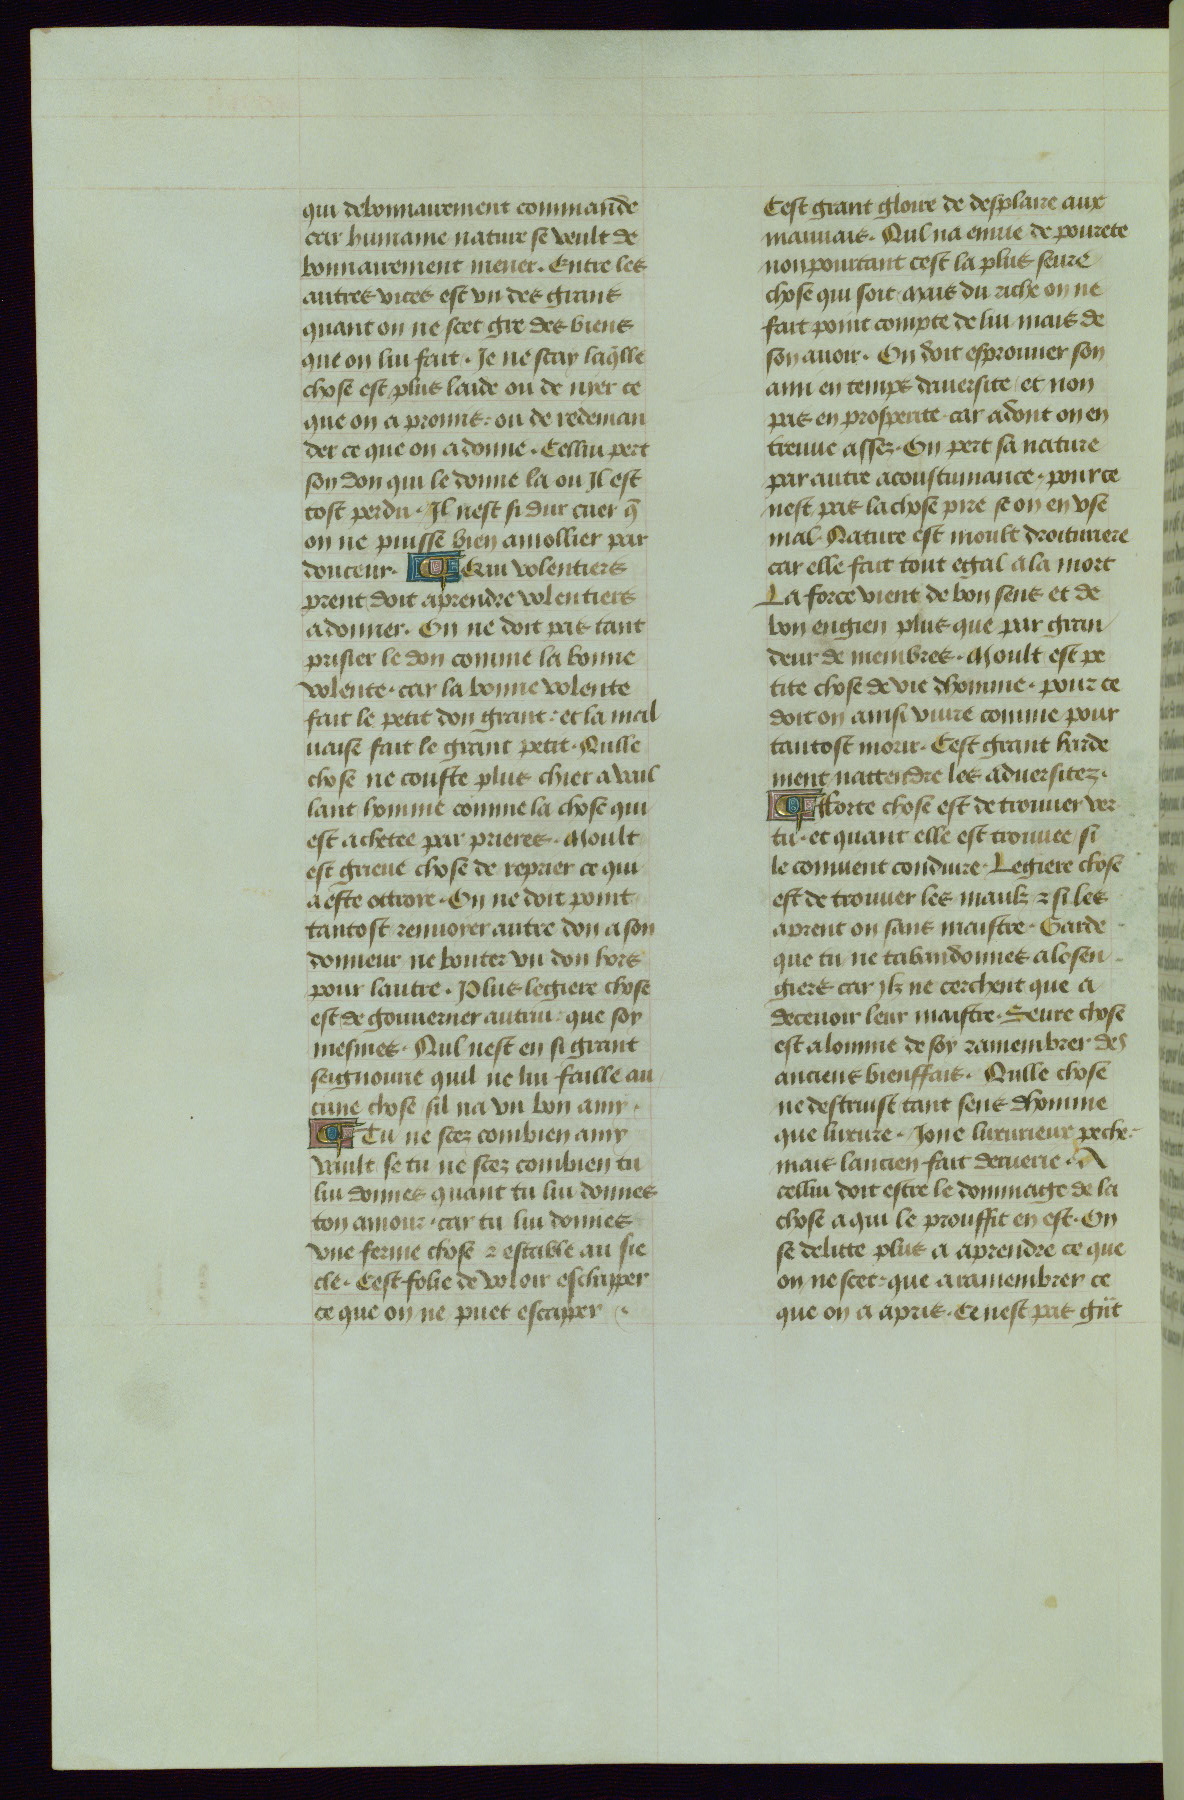 qui debonnairement commande
car humaine nature se veult de
bonnairement mener. Entre les
autres vices est vn des grans
quant on ne scet gre des biens
que on lui fait. Je ne scay laq̄lle
chose est plus laide ou de nyer ce
que on a promis: ou de redeman
der ce que on a donne. Cellui pert
son don qui le donne la ou Il est
tost perdu. Il nest si dur cuer q̄
on ne puisse bien amollier par
douceur. ¶ Qui volentiers
prent doit aprendre volentiers
a donner. On ne doit pas tant
prisier le don comme la bonne
volente. car la bonne volente
fait le petit don grant: et la mal
uaise fait le grant petit. Nulle
chose ne couste plus chier a vail
lant homme comme la chose qui
est achetee par prieres. Moult
est grieue chose de reprier ce qui
a este octroie. On ne doit point
tantost renuoier autre don a son
donneur ne bouter vn don hors
pour lautre. Plus legiere chose
est de gouuerner autrui: que soy
mesmes. Nul nest en si grant
seignourie quil ne lui faille au
cune chose sil na vn bon amy.
¶ Tu ne scez combien amy
vault se tu ne scez combien tu
lui donnes quant tu lui donnes
ton amour. car tu lui donnes
vne ferme chose ⁊ estable au sie
cle. Cest folie de voloir eschapper
ce que on ne puet escapper.
Cest grant gloire de desplaire aux
mauuais. Nul na enuie de pourete
nonpourtant cest la plus seure
chose qui soit mais du riche on ne
fait point compte de lui mais de
son auoir. On doit esprouuer son
ami en temps daversite et non
pas en prosperite car adont on en
treuue assez. On pert sa nature
par autre acoustumance. pour ce
nest pas la chose pire se on en vse
mal. Nature est moult droituriere
car elle fait tout egal a la mort
La force vient de bon sens et de
bon engien plus que par gran
deur de membres. Moult est pe
tite chose de vie dhomme. pour ce
doit on ainsi viure comme pour
tantost morir. Cest grant harde
ment nattendre les aduersitez.
¶ Forte chose est de trouuer ver
tu. et quant elle est trouuee si
le conuient conduire. Legiere chose
est de trouuer les maulz ⁊ si les
aprent on sans maistre. Garde
que tu ne tabandonnes a losen
giers car Ilz ne cerchent que a
deceuoir leur maistre. Seure chose
est a lomme de soy ramembrer des
anciens bienffais. Nulle chose
ne destruist tant sens dhomme
que luxure. Jone luxurieux peche:
mais lancien fait deruerie. A
cellui doit estre le dommage de la
chose a qui le prouffit en est. On
se delitte plus a aprendre ce que
on ne scet: que a ramembrer ce
que on a apris. Ce nest pas g̃nt